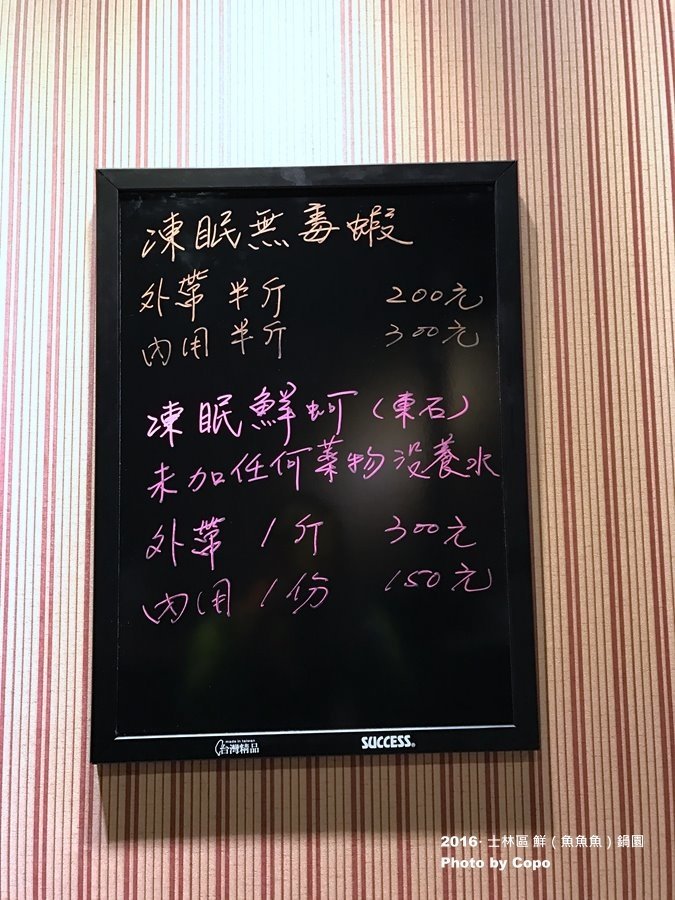 凍眠無毒蝦
外帶 半斤 200元
內用 半斤 300元
凍眠鮮蚵(東石)
未加任何藥物沒養水
外帶 1斤 300元
內用 1份 150元
made in taiwan
台灣精品
SUCCESS®
2016· 士林區 鮮(魚魚魚)鍋圈
Photo by Copo